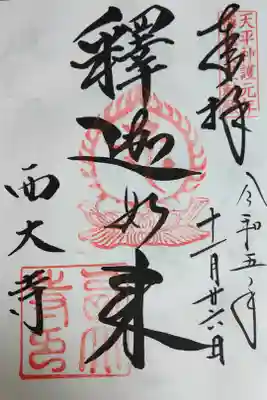 奉拝
天平神護元年
令和五年
十一月廿六日
釋迦如来
西大寺